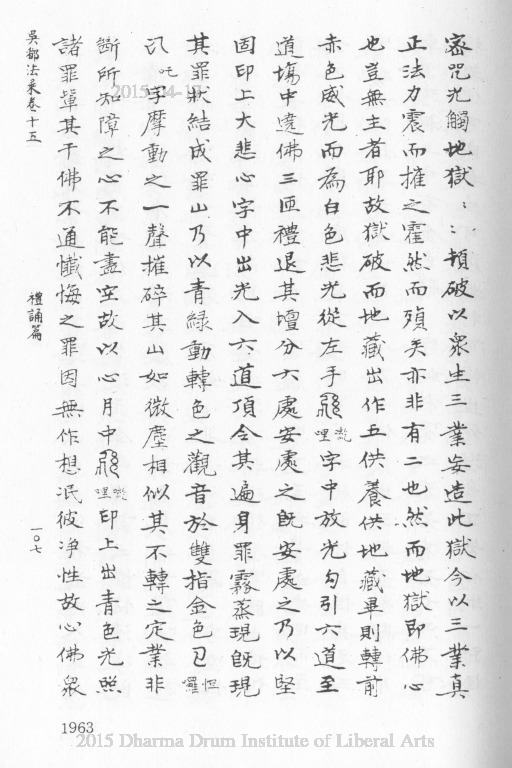 密咒光觸地獄：：頓破以眾生三業妄造此獄今以三業真
正法力震而摧之霍然而殞矣亦非有二也然而地獄即佛心
也豈無主者耶故獄破而地藏出作五供養供地藏畢則轉前
赤色威光而為白色悲光從左手字中放光勾引六道至
道塲中遶佛三匝禮退其壇分六處安處之既安處之乃以堅
固印上大悲心字中出光入六道頂令其遍身罪霧蒸現既現
其罪狀結成罪山乃以青綠動轉色之觀音於雙指金色
吒字摩動之一聲摧碎其山如微塵相似其不轉之定業非
斷所知障之心不能盡空故以心月中印上出青色光照
諸罪輩其于佛不通懺悔之罪因無作想泯彼净性故心佛眾
吳都法乘卷十五
禮誦篇
一〇七
1963
2015 Dharma Drum Institute of Liberal Arts